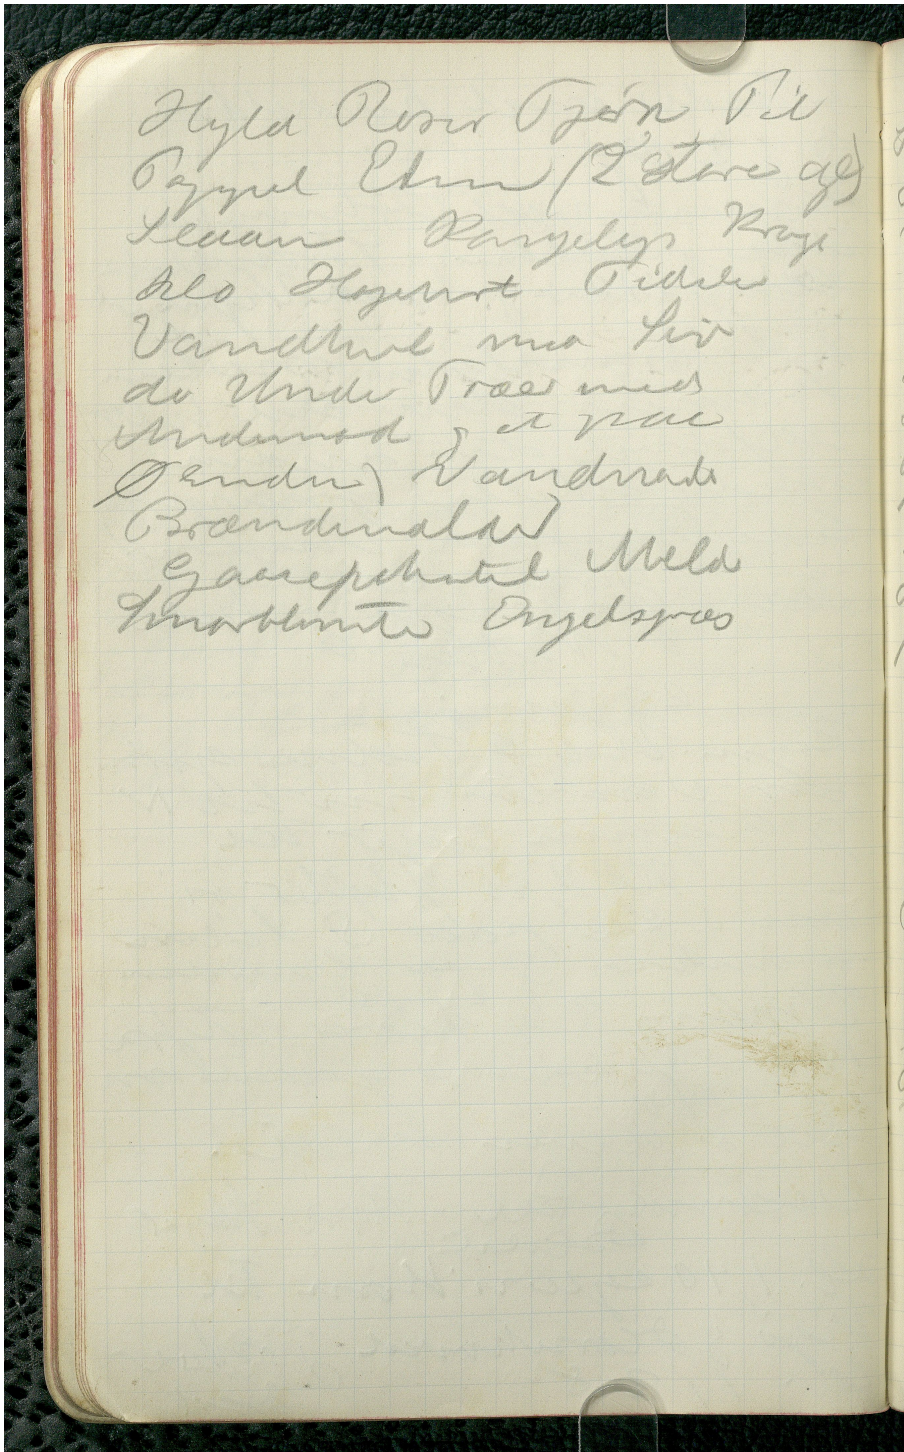 Hyld Roser Tjørn, Pil
Poppel Elm (2 store gl)
Slaaen Kongelys Krage
klo Hopeurt Tidsler
Vandhul med Siv
do Under Træer med
Andemad og et paa
Øen Vandnavle
Brændenælder
Gaasepotentil Melde
Smørblomster Engelsgræs